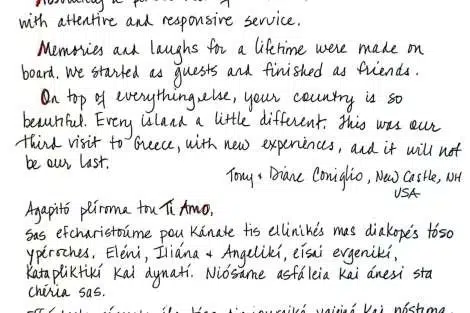 with attentive and responsive service.
Memories and laughs for a lifetime were made on
board. We started as guests and finished as friends.
On top of everything else, your country is so
beautiful. Every island a little different. This was our
third visit to Greece, with new experiences, and it will not
be our last.
Tony + Diane Coniglio, New Castle, NH
USA
Agapitó plíroma tou Ti Amo,
Sas efcharistoúme pou kánate tis ellinikés mas diakopés tóso
ypéroches. Eléni, Iliána + Angelikí, eísai evgenikí,
katapliktikí kai dynatí. Niósame asfáleia kai ánesi sta
chéria sas.